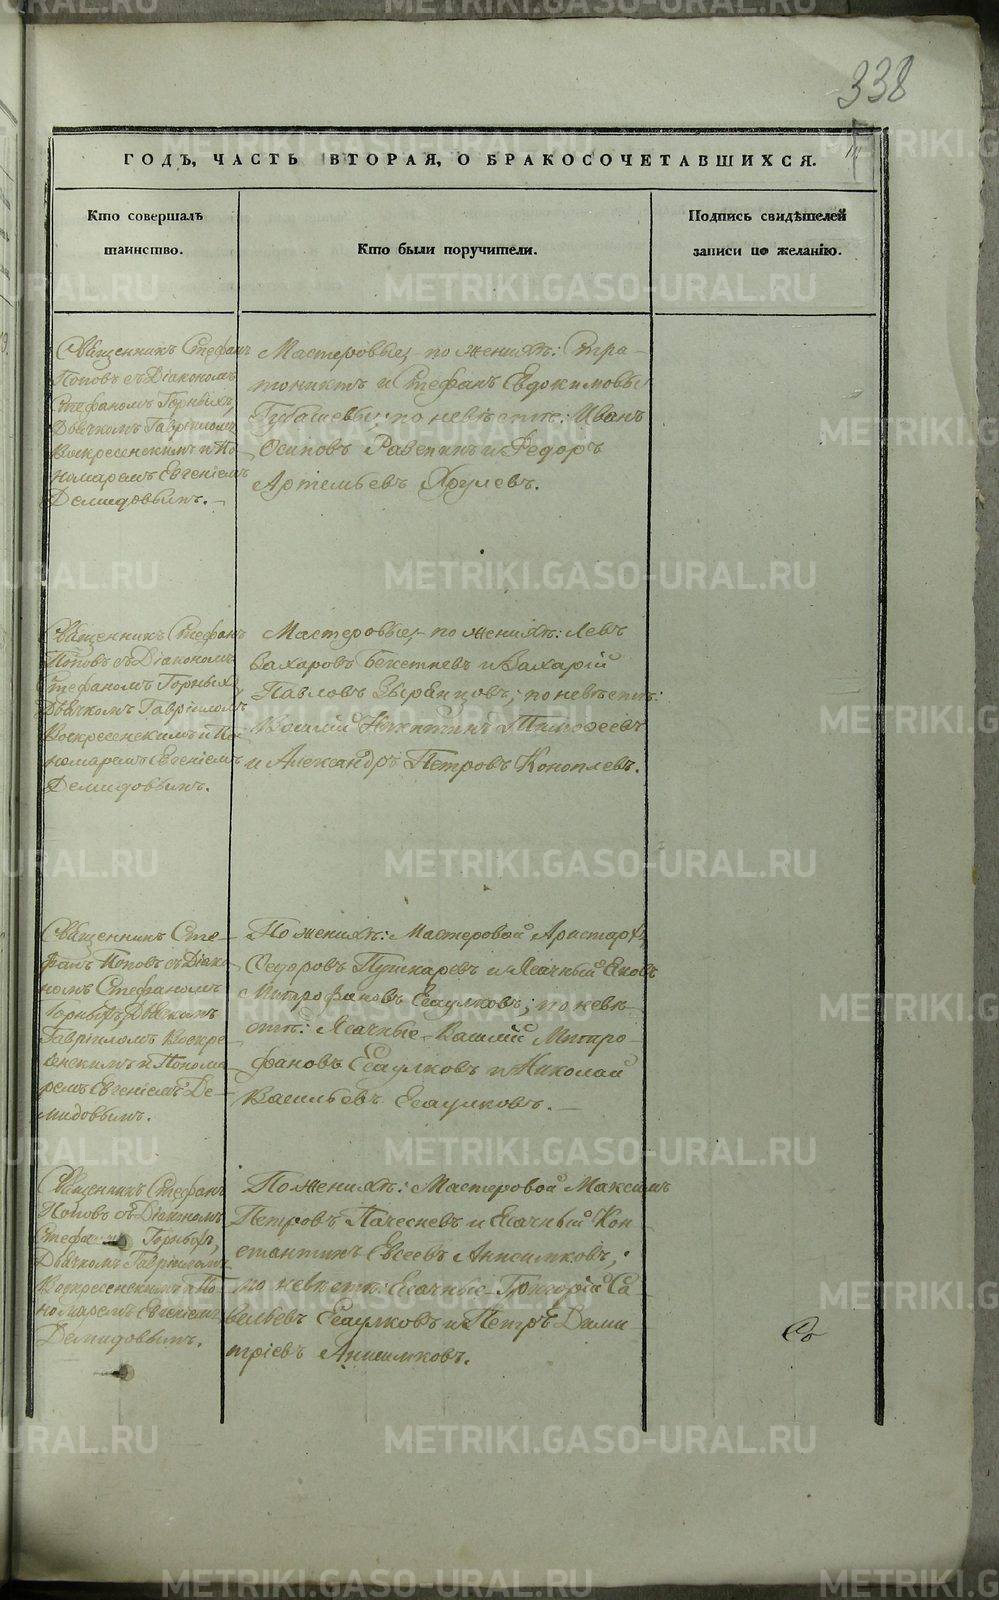 338
ГОДЪ, ЧАСТЬ ВТОРАЯ, О БРАКОСОЧЕТАВШИХСЯ.
Кто совершалъ
таинство.
Кто были поручители.
Подпись свидѣтелей
записи по желанію.
Священникъ Стефанъ
Поповъ съ Діакономъ
Стефаномъ Горныхъ,
Дьячкомъ Гавріиломъ
Воскресенскимъ и По
номаремъ Евгеніемъ
Демидовымъ.
Мастеровые, по женихѣ: Стра-
тоникъ и Стефанъ Евдокимовы
по невѣстѣ: Иванъ
Осиповъ и Федоръ
Артемьевъ Хрулевъ.
Священникъ Стефанъ
Поповъ съ Діакономъ
Стефаномъ Горныхъ,
Дьячкомъ Гавріиломъ
Воскресенскимъ и По
номаремъ Евгеніемъ
Демидовымъ.
Мастеровые, по женихѣ: Левъ
Захаровъ и Захарій
Павловъ Зырянцовъ; по невѣстѣ:
Василій Никитинъ Тимофеевъ
и Александръ Петровъ Коноплевъ.
Священникъ Сте-
фанъ Поповъ съ Діако-
номъ Стефаномъ
Горныхъ, Дьячкомъ
Гавріиломъ Воскре
сенскимъ и Понома
ремъ Евгеніемъ Де-
мидовымъ.
По женихѣ: Мастеровой Аристархъ
Федоровъ Пушкаревъ и Ясачный Яковъ
Митрофановъ Есаулковъ; по невѣ-
стѣ: Ясачные Василій Митро-
фановъ Есаулковъ и Николай
Васильевъ Есаулковъ.
Священникъ Стефанъ
Поповъ съ Діакономъ
Стефаномъ Горныхъ,
Дьячкомъ Гавріиломъ
Воскресенскимъ и По
номаремъ Евгеніемъ
Демидовымъ.
По женихѣ: Мастеровой Максимъ
Петровъ и Ясачный Кон
стантинъ Евсеевъ Анисимковъ;
по невѣстѣ: Ясачные Григорій Са
вельевъ Есаулковъ и Петръ Дими
тріевъ Анисимковъ.
Со
METRIKI.GASO-URAL.RU